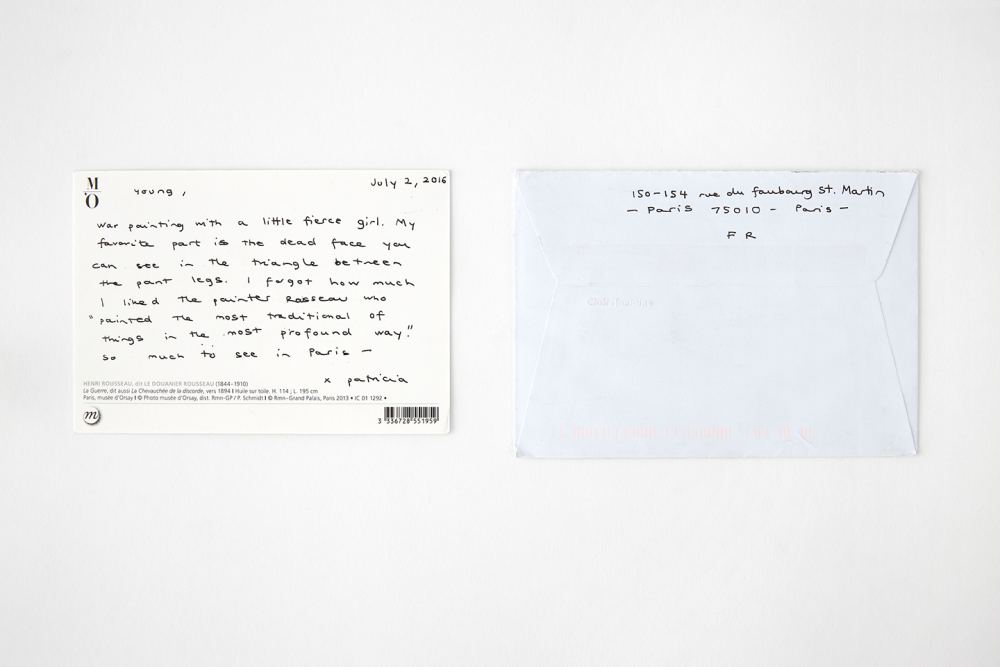 M
'O
July 2, 2016
young,
war painting with a little fierce girl. My
favorite part is the dead face you
can see in the triangle between
the pant legs. I forgot how much
I liked the painter Rosseau who
"painted the most traditional of
things in the most profound way."
so much to see in Paris —
x patricia
HENRI ROUSSEAU, dit LE DOUANIER ROUSSEAU (1844-1910)
La Guerre, dit aussi La Chevauchée de la discorde, vers 1894 I Huile sur toile. H. 114 ; L. 195 cm
Paris, musée d'Orsay I © Photo musée d'Orsay, dist. Rmn-GP / P. Schmidt I © Rmn-Grand Palais, Paris 2013 • IC 01 1292 •
m
3 336728 551959
150-154 rue du faubourg St. Martin
— Paris 75010 - Paris —
FR